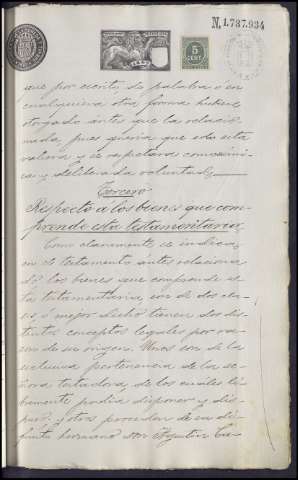 N. 1.737.934
5
CENT.
que por escrito, de palabra o en
cualquiera otra forma hubiere
otorgado antes que la relacio-
nada pues queria que esta esta
valiera y se respetara como úni-
ca y deliberada voluntad.
Tercero
Respecto a los bienes que com-
prende esta testamentaria.
Como claramente se indica,
en el testamento antes relaciona-
do los bienes que comprende es-
ta testamentaria, son de dos cla-
ses, o mejor dicho tienen dos dis-
tintos conceptos legales por ra-
zon de su origen. Unos son de la
esclusiva pertenencia de la se-
ñora testadora, de los cuales li-
bremente podia disponer y dis-
puso, y otros proceden de su di-
funto hermano don Agustin Ca-